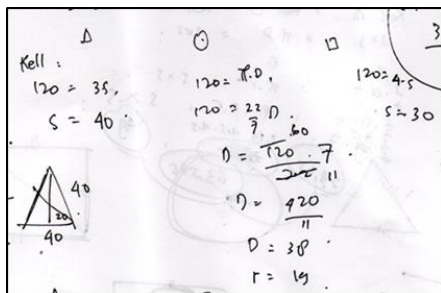 Δ
Kell :
120 = 3s.
s = 40
40
20
40
⊙
120 = π.D.
120 = 22/7 D.
60
D = 120 . 7 / 22 11
D = 420 / 11
D = 38
r = 19
□
120 = 4.s
s = 30
3